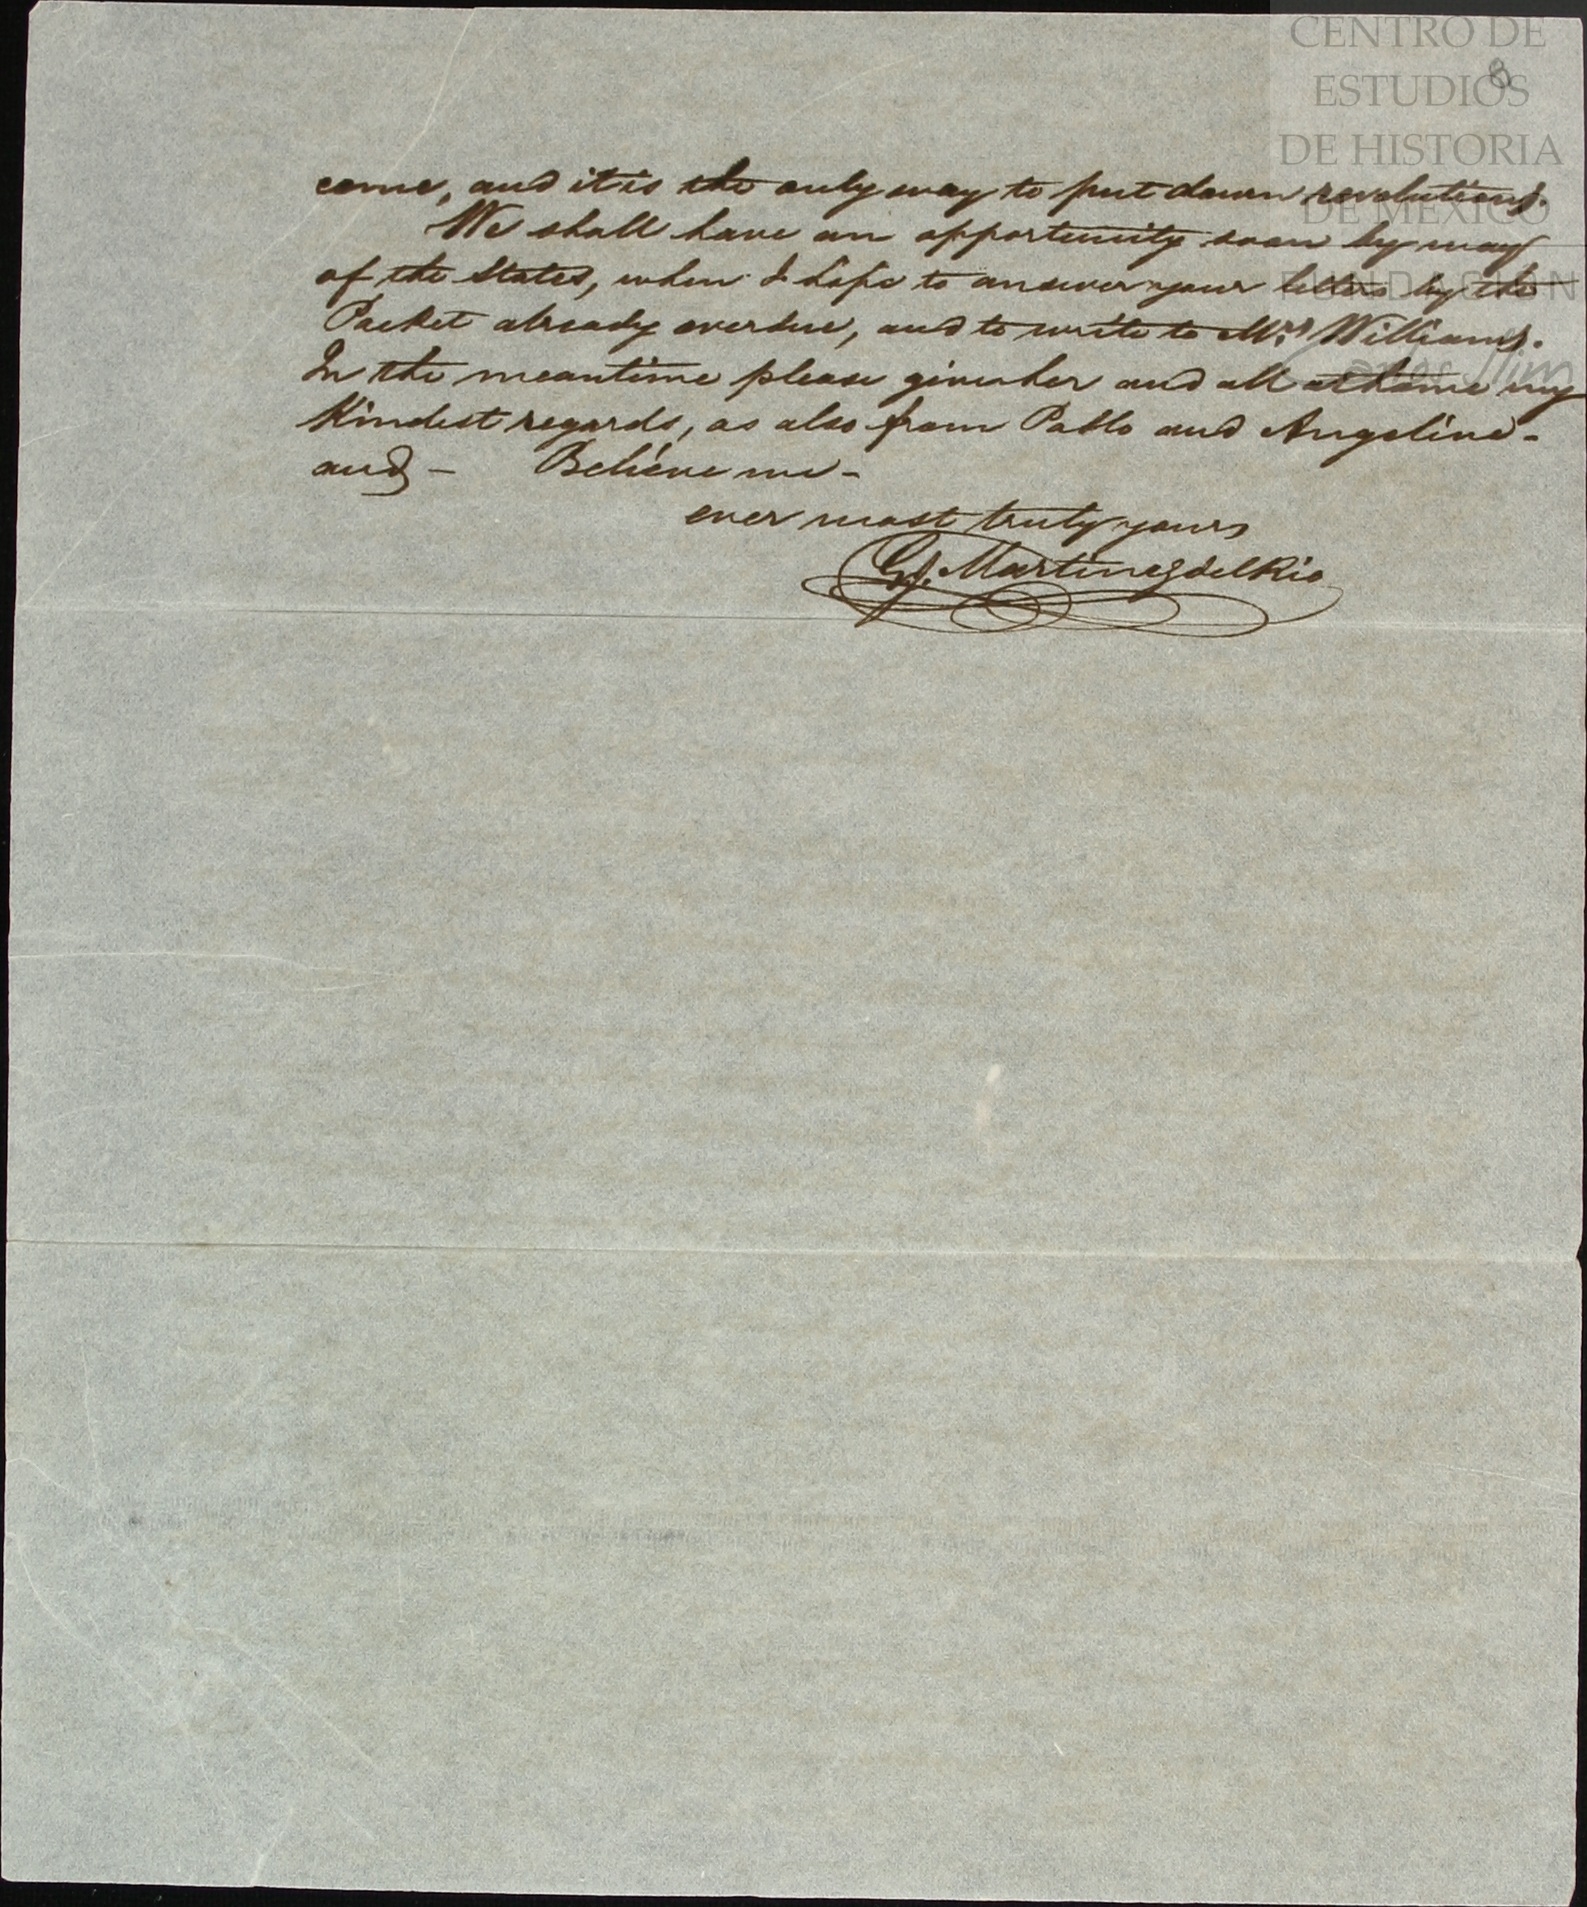 CENTRO DE
ESTUDIOS
DE HISTORIA
DE MEXICO
FUNDACIÓN
Carlos Slim
8
come, and it is the only way to put down revolutions.
We shall have an opportunity soon by way
of the States, when I hope to answer your letters by the
Packet already overdue, and to write to Mrs Williams.
In the meantime please give her and all at home my
Kindest regards, as also from Pablo and Angeline -
and - Believe me -
ever most truly yours
G. Martinez del Rio